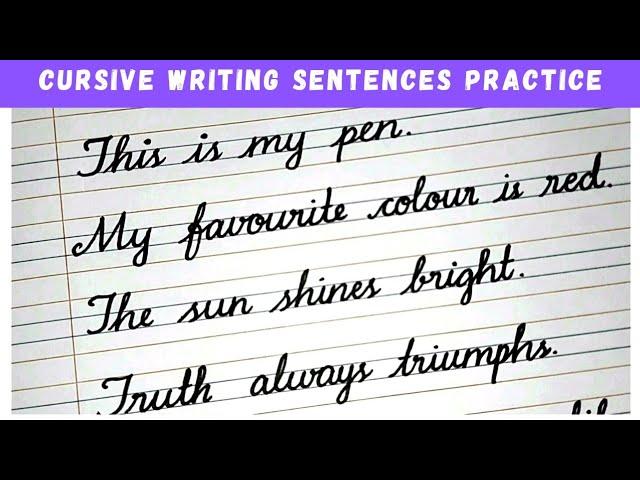 CURSIVE WRITING SENTENCES PRACTICE
This is my pen.
My favourite colour is red.
The sun shines bright.
Truth always triumphs.